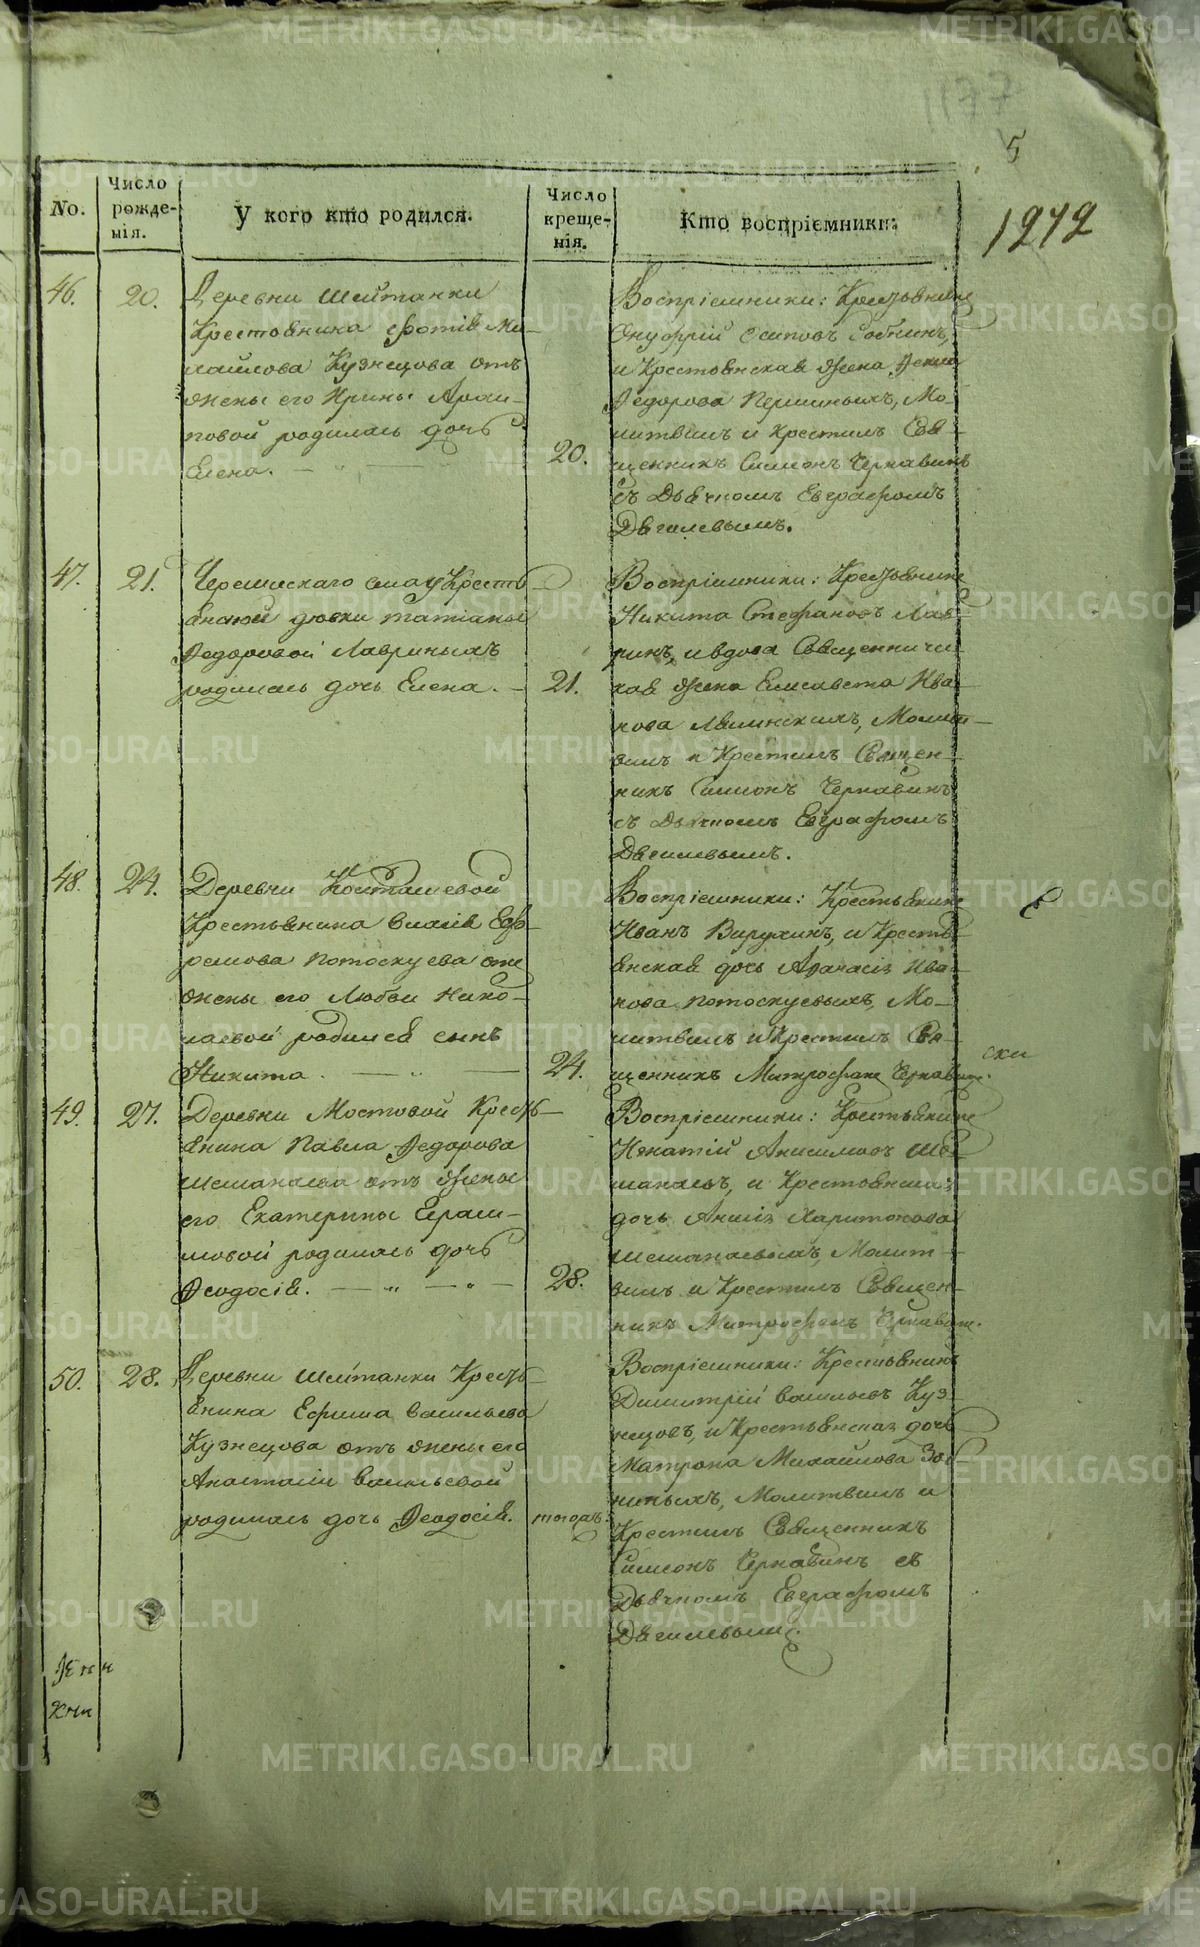 1177
5
1272
No.
Число рожде- нія.
У кого кто родился.
Число креще- нія.
Кто воспріемники:
46.
20.
Деревни Шайтанки
Крестьянина Фотія Ми-
хайлова Кузнецова отъ
жены его Ирины Архи-
повой родилась дочь
Елена.
20.
Воспріемники: Крестьянинъ
Онуфрій Осиповъ
и Крестьянская жена
Федорова Першиныхъ, Мо-
литвилъ и Крестилъ Свя-
щенникъ Симонъ Чернавинъ
съ Дьячкомъ Евграфомъ
Дягилевымъ.
47.
21.
Черемисскаго села Кресть-
янской дѣвки Татіаны
Федоровой Лавриныхъ
родилась дочь Елена.
21.
Воспріемники: Крестьянинъ
Никита Стефановъ Лав-
ринъ, и вдова Священничес-
кая жена Елисавета Ива-
нова Молит-
вилъ и Крестилъ Священ-
никъ Симонъ Чернавинъ
съ Дьячкомъ Евграфомъ
Дягилевымъ.
48.
24.
Деревни Косташевой
Крестьянина Власія Еф-
ремова Потоскуева отъ
жены его Любви Нико-
лаевой родился сынъ
Никита.
24.
Воспріемники: Крестьянинъ
Иванъ и Кресть-
янская дочь Ива-
нова Потоскуевыхъ, Мо-
литвилъ и Крестилъ Свя-
щенникъ Митрофанъ Чернавинъ.
49.
27.
Деревни Мостовой Кресть-
янина Павла Федорова
Шеманаева отъ жены
его Екатерины Герасим-
овой родилась дочь
Феодосія.
28.
Воспріемники: Крестьянинъ
Игнатій Анисимовъ Ше-
манаевъ, и Крестьянская
дочь Харитонова
Шеманаевыхъ, Молит-
вилъ и Крестилъ Священ-
никъ Митрофанъ Чернавинъ.
50.
28.
Деревни Шайтанки Кресть-
янина Ефима Васильева
Кузнецова отъ жены его
Анастасіи Васильевой
родилась дочь Феодосія.
тогожъ.
Воспріемники: Крестьянинъ
Димитрій Васильевъ Куз-
нецовъ, и Крестьянская дочь
Матрона Михайлова Зоб-
ниныхъ, Молитвилъ и
Крестилъ Священникъ
Симонъ Чернавинъ съ
Дьячкомъ Евграфомъ
Дягилевымъ.
METRIKI.GASO-URAL.RU